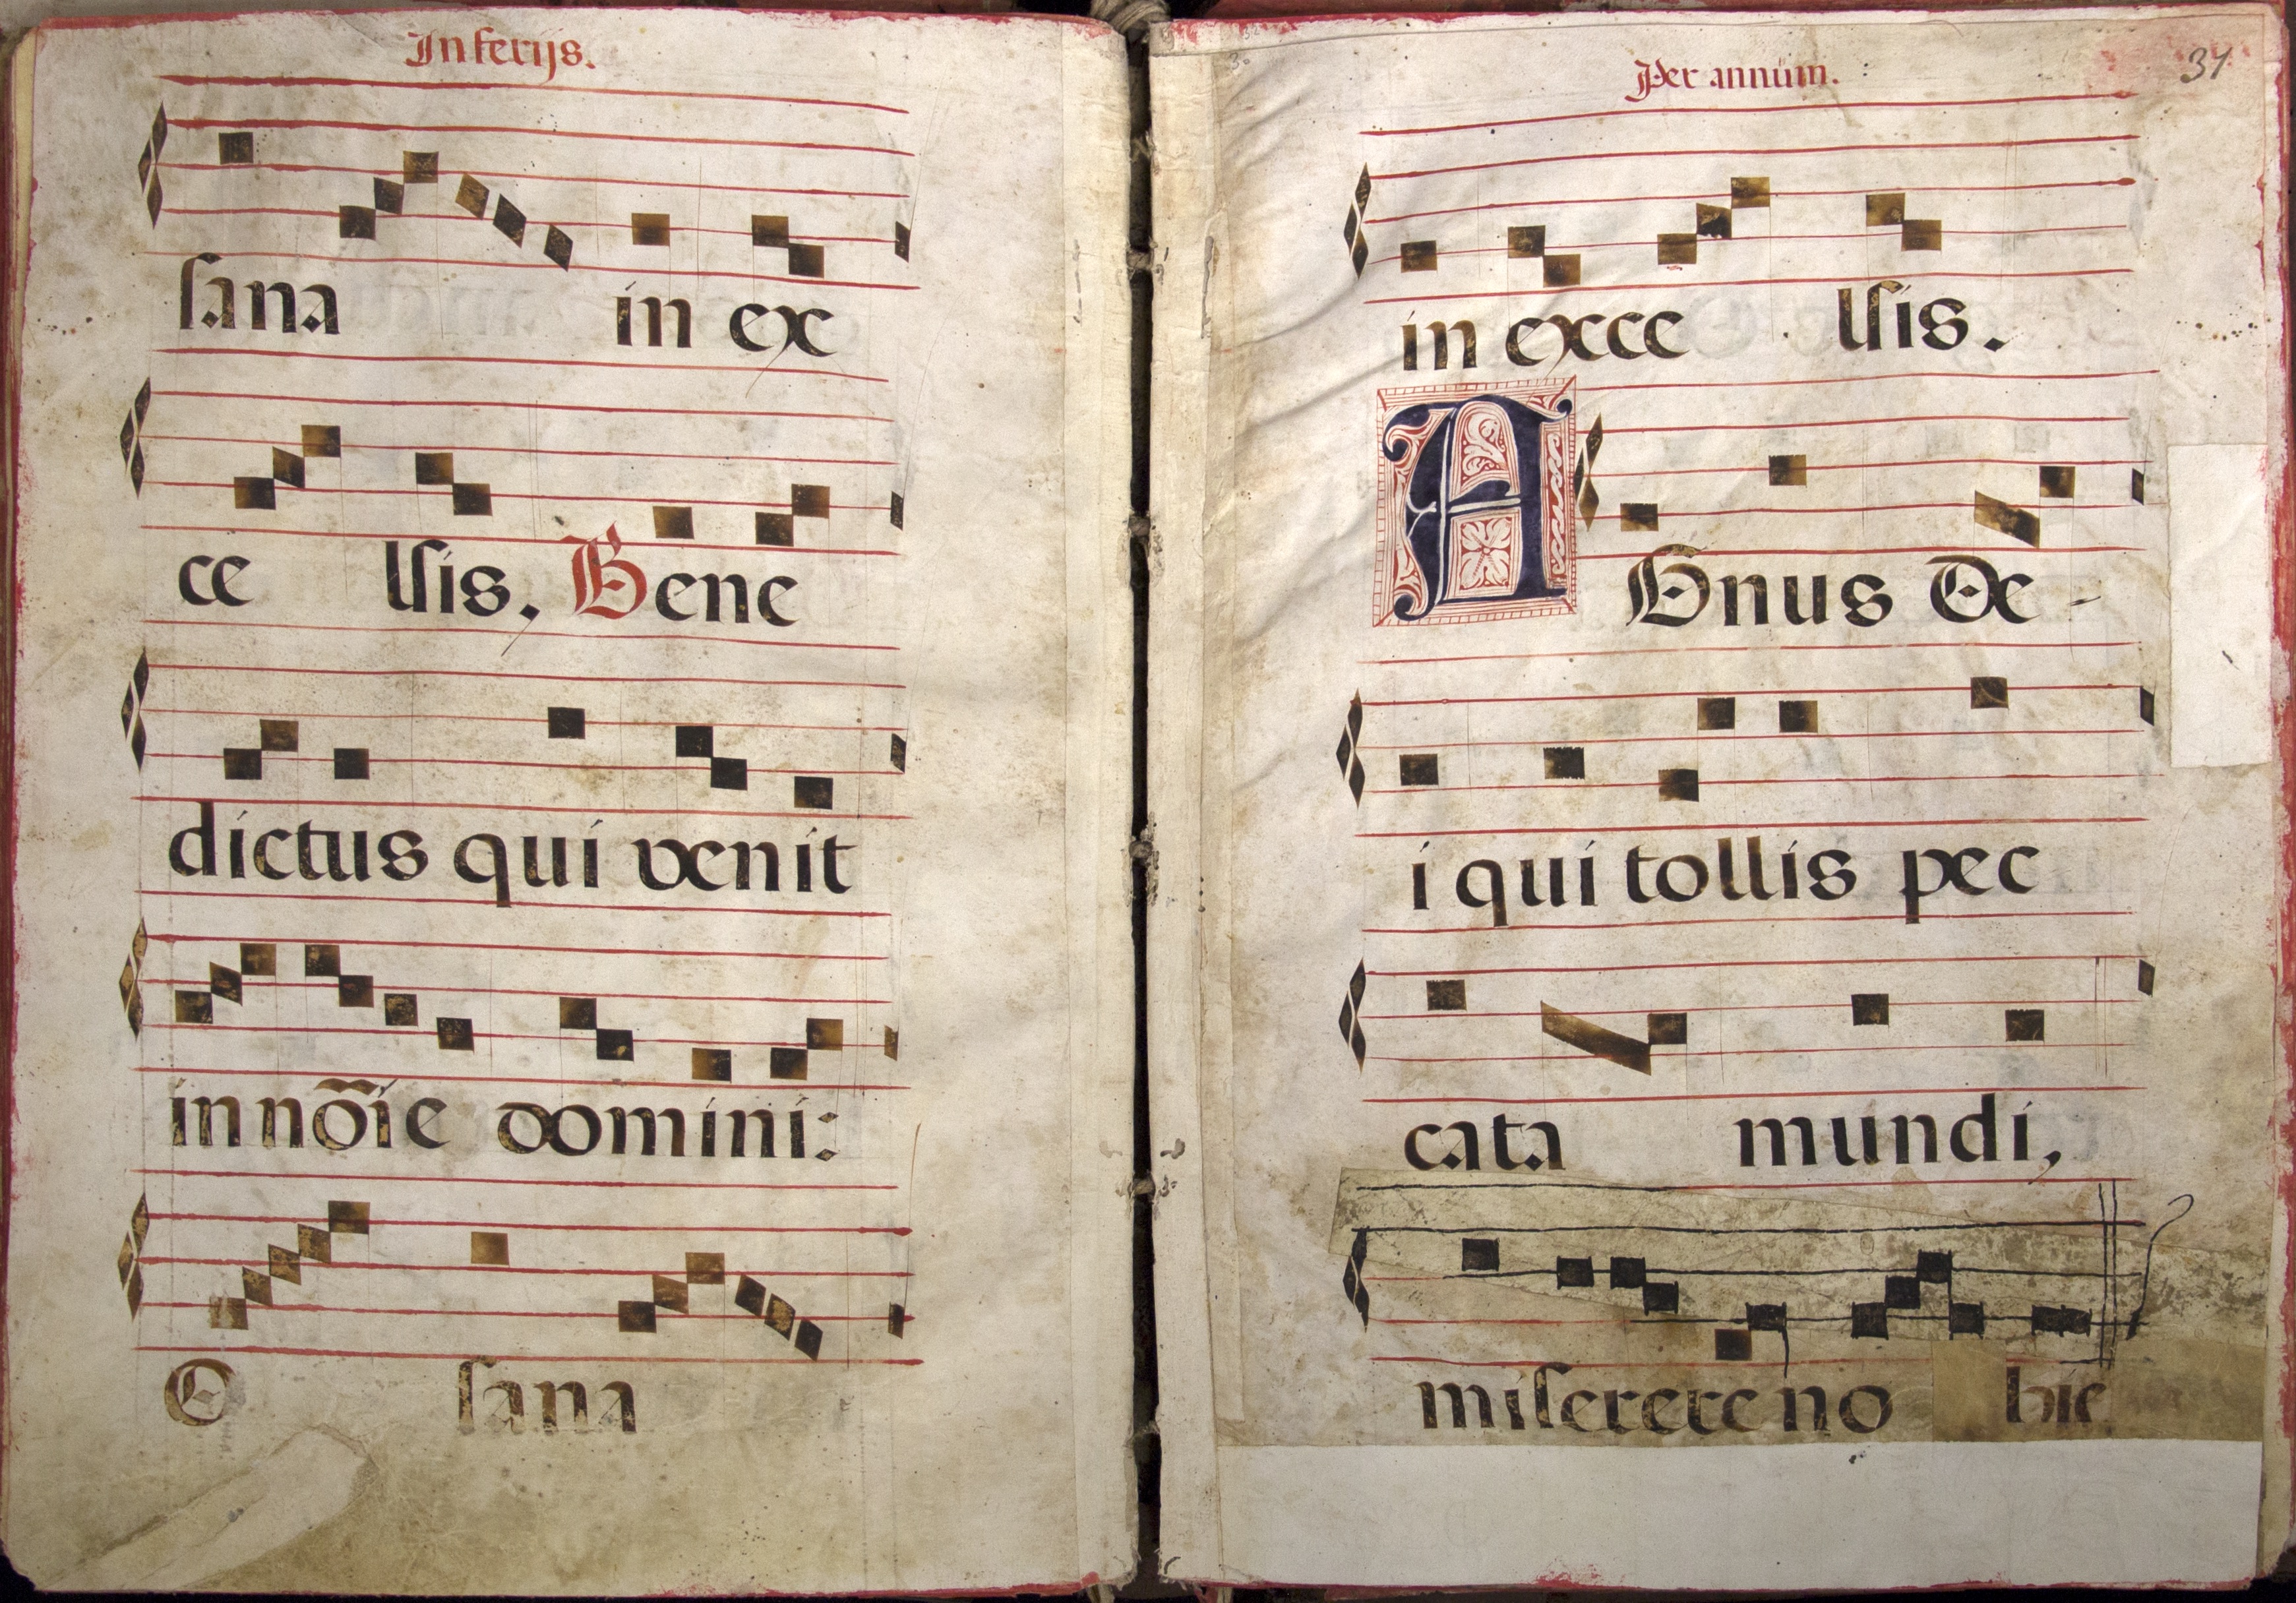 In ferijs.
sana in ex
ce lsis. Bene
dictus qui venit
in nõie domini:
O sana
Per annum.
31
in exce lsis.
A Gnus De-
i qui tollis pec
cata mundi,
miserere no bis